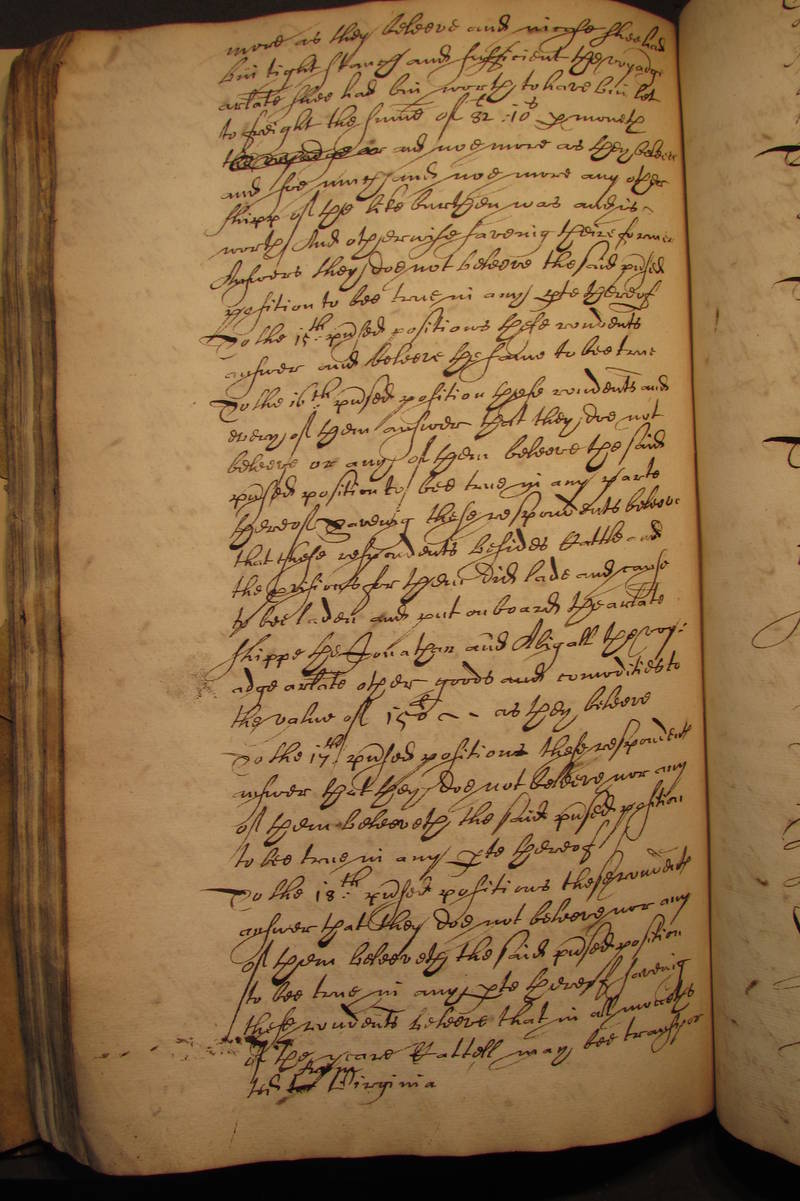 more as they beleeve and in case shee had
bin tight stanch and sufficient the voyadge
artate shee had bin worth to have bin let
to freight the sume of 82li : 10s p moneth
and noe more as they beleeve
and soe much and noe more any other
shipp of the like burthen was and is
worth And otherwise saveing theire former
Answers they doe not beleeve the said pused
position to bee true in any pte thereof
To the 15th: pused positions these rondents
answer and beleeve the same to bee true
To the 16th: pused position these rondents and
every of them answer that they doe not
beleeve or any of them beleeve the said
pused position to bee true in any parte
thereof Saveing these respondents beleeve
that these respondents besides Cattle and
the pvisions for them did lade and cause
to bee laden and put on board the artate
shippe the Jonathan and Abigall the voy:
adge artate other goods and comodities to
the value of 150li - - as they beleeve
To the 17th: pused positions these respondents
answer that they doe not beleeve nor any
of them beleeveth the said pused position
to bee true in any pte thereof
To the 18:th pused positions these rondents
answer that they doe not beleeve nor any
of them beleeveth the said pused position
to bee true in any pte thereof saveing
these rondents beleeve that in all moneths
of the yeare Cattell may bee transpor
ted from Virginia